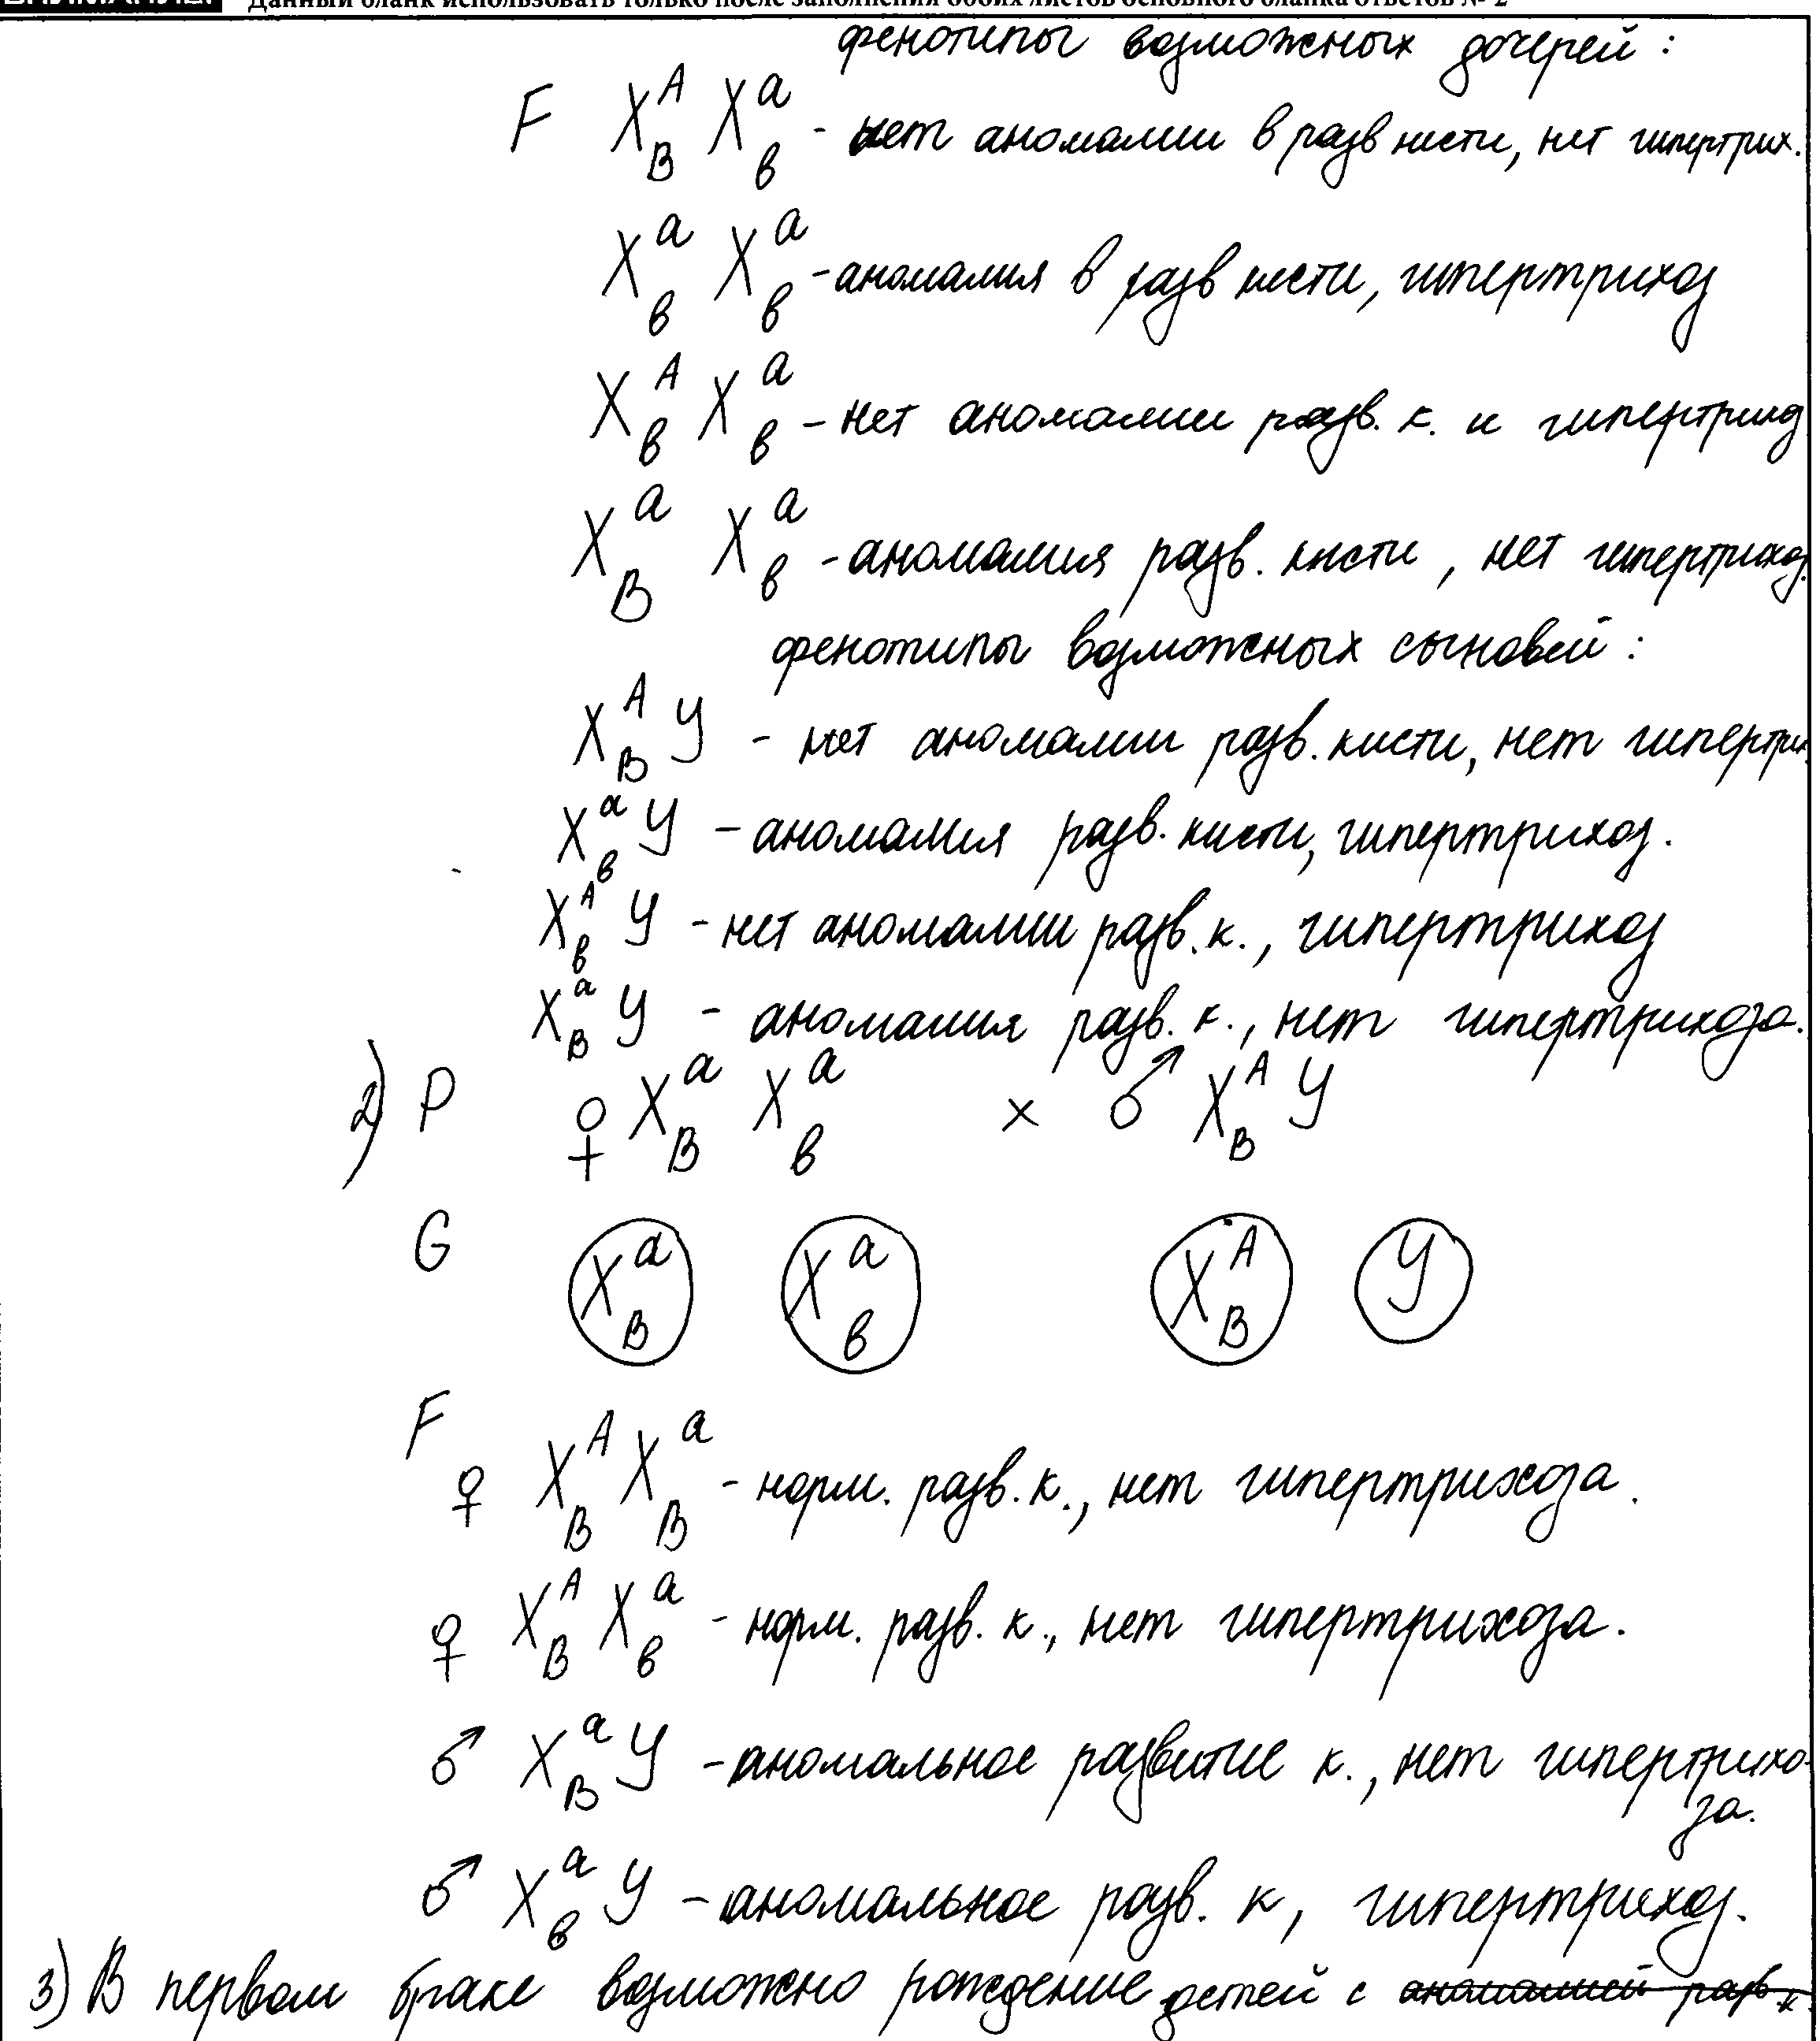 Данный бланк использовать только после заполнения обоих листов основного бланка ответов № 2
фенотипы возможных дочерей :
F X^A_B X^a_в - нет аномалии в разв кисти, нет гипертрих.
X^a_в X^a_в - аномалия в разв кисти, гипертрихоз
X^A_в X^a_в - нет аномалии разв. к. и гипертрихоз
X^a_B X^a_в - аномалия разв. кисти , нет гипертрихоз.
фенотипы возможных сыновей :
X^A_B У - нет аномалии разв. кисти, нет гипертрих.
X^a_в У - аномалия разв. кисти, гипертрихоз.
X^A_в У - нет аномалии разв. к., гипертрихоз
X^a_B У - аномалия разв. к., нет гипертрихоза.
2) P ♀ X^a_B X^a_в × ♂ X^A_B У
G X^a_B X^a_в X^A_B У
F
♀ X^A_B X^a_B - норм. разв. к., нет гипертрихоза.
♀ X^A_B X^a_в - норм. разв. к., нет гипертрихоза.
♂ X^a_B У - аномальное развитие к., нет гипертрихо-
за.
♂ X^a_в У - аномальное разв. к, гипертрихоз.
3) В первом браке возможно рождение детей с аномалией разв к.